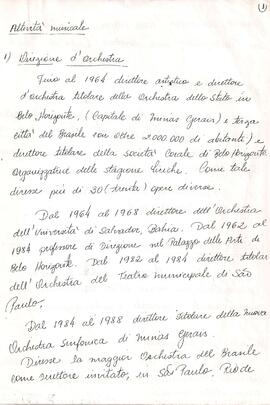 1
Attività musicale
1) Direzione d'Orchestra
Fino al 1964 direttore artistico e direttore
d'orchestra titolare della Orchestra dello Stato in
Belo Horizonte, (Capitale di Minas Gerais) e terza
città del Brasile con oltre 2.000.000 di abitanti) e
direttore titolare della società Corale di Belo Horizonte.
Organizzatore delle stagione liriche. Come tale
diresse più di 30 (trenta) opere diverse.
Dal 1964 al 1968 direttore dell'Orchestra
dell'Università di Salvador, Bahia. Dal 1962 al
1984 professore di Direzione nel Palazzo delle Arti di
Belo Horizonte. Dal 1982 al 1984 direttore titolare
dell'Orchestra del Teatro municipale di São
Paulo.
Dal 1984 al 1988 direttore titolare della nuova
Orchestra Sinfonica di Minas Gerais.
Diresse la maggior Orchestra del Brasile
come direttore invitato, in São Paulo, Rio de